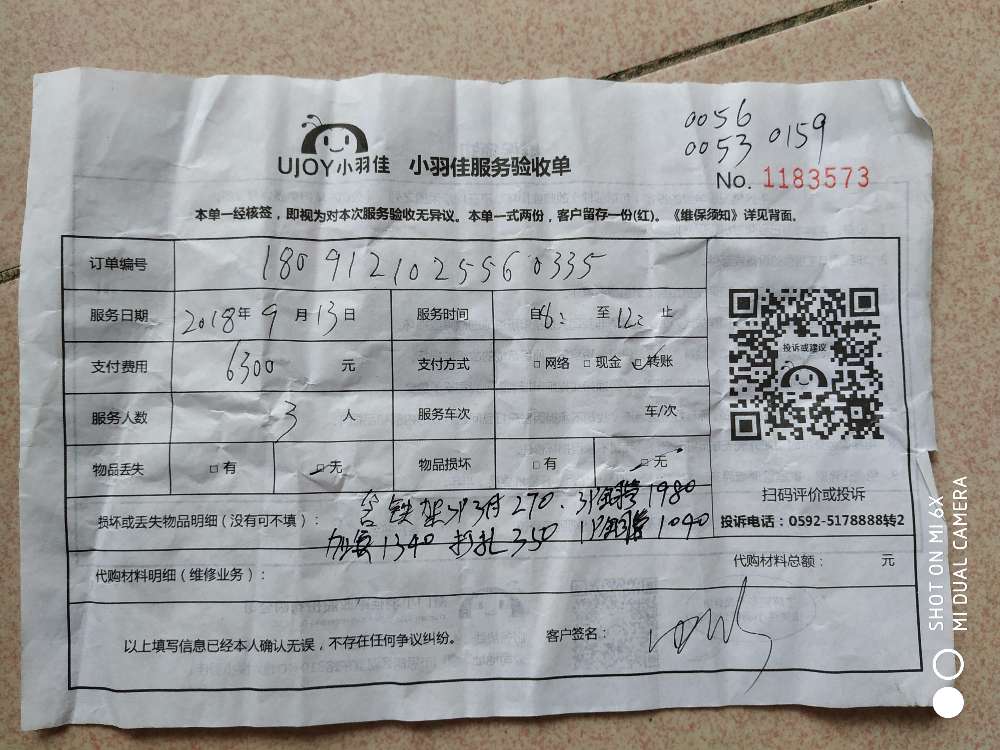 0056
0053 0159
UJOY小羽佳 小羽佳服务验收单
No. 1183573
本单一经核签，即视为对本次服务验收无异议。本单一式两份，客户留存一份(红)。《维保须知》详见背面。
订单编号 1809121025560335
服务日期 2018年9月13日 服务时间 自8: 至12: 止
支付费用 6300 元 支付方式 □网络 □现金 □转账
服务人数 3 人 服务车次 车/次
物品丢失 □有 □无 物品损坏 □有 □无
投诉或建议
扫码评价或投诉
投诉电话：0592-5178888转2
损坏或丢失物品明细（没有可不填）： 含铁架 270. 1980
1340 打孔350 1040
代购材料明细（维修业务）： 代购材料总额： 元
以上填写信息已经本人确认无误，不存在任何争议纠纷。 客户签名：
SHOT ON MI 6X
MI DUAL CAMERA